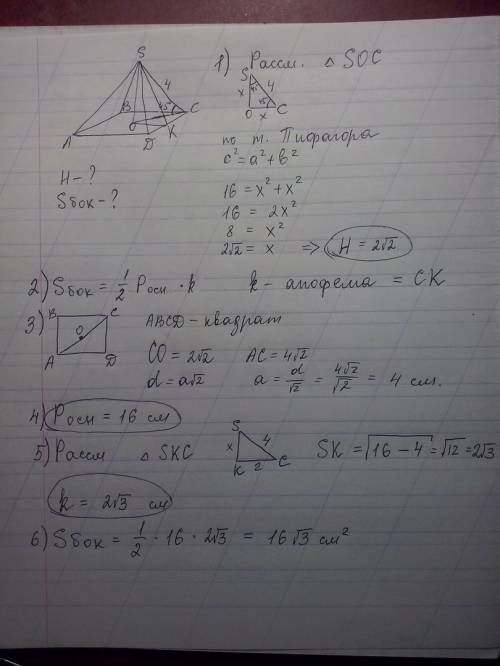 S
4
B
45°
C
O
K
A
D
H - ?
Sбок - ?
1) Рассм. △ SOC
S
45
x
4
45
O
x
C
по т. Пифагора
c² = a² + b²
16 = x² + x²
16 = 2x²
8 = x²
2√2 = x ⇒ H = 2√2
2) Sбок = 1/2 Pосн · k k - апофема = CK
3) B C ABCD - квадрат
O
A D
CO = 2√2 AC = 4√2
d = a√2 a = d/√2 = 4√2/√2 = 4 см.
4) Pосн = 16 см
5) Рассм △ SKC
S
x
4
K
2
C
SK = √16 - 4 = √12 = 2√3
k = 2√3 см
6) Sбок = 1/2 · 16 · 2√3 = 16√3 см²